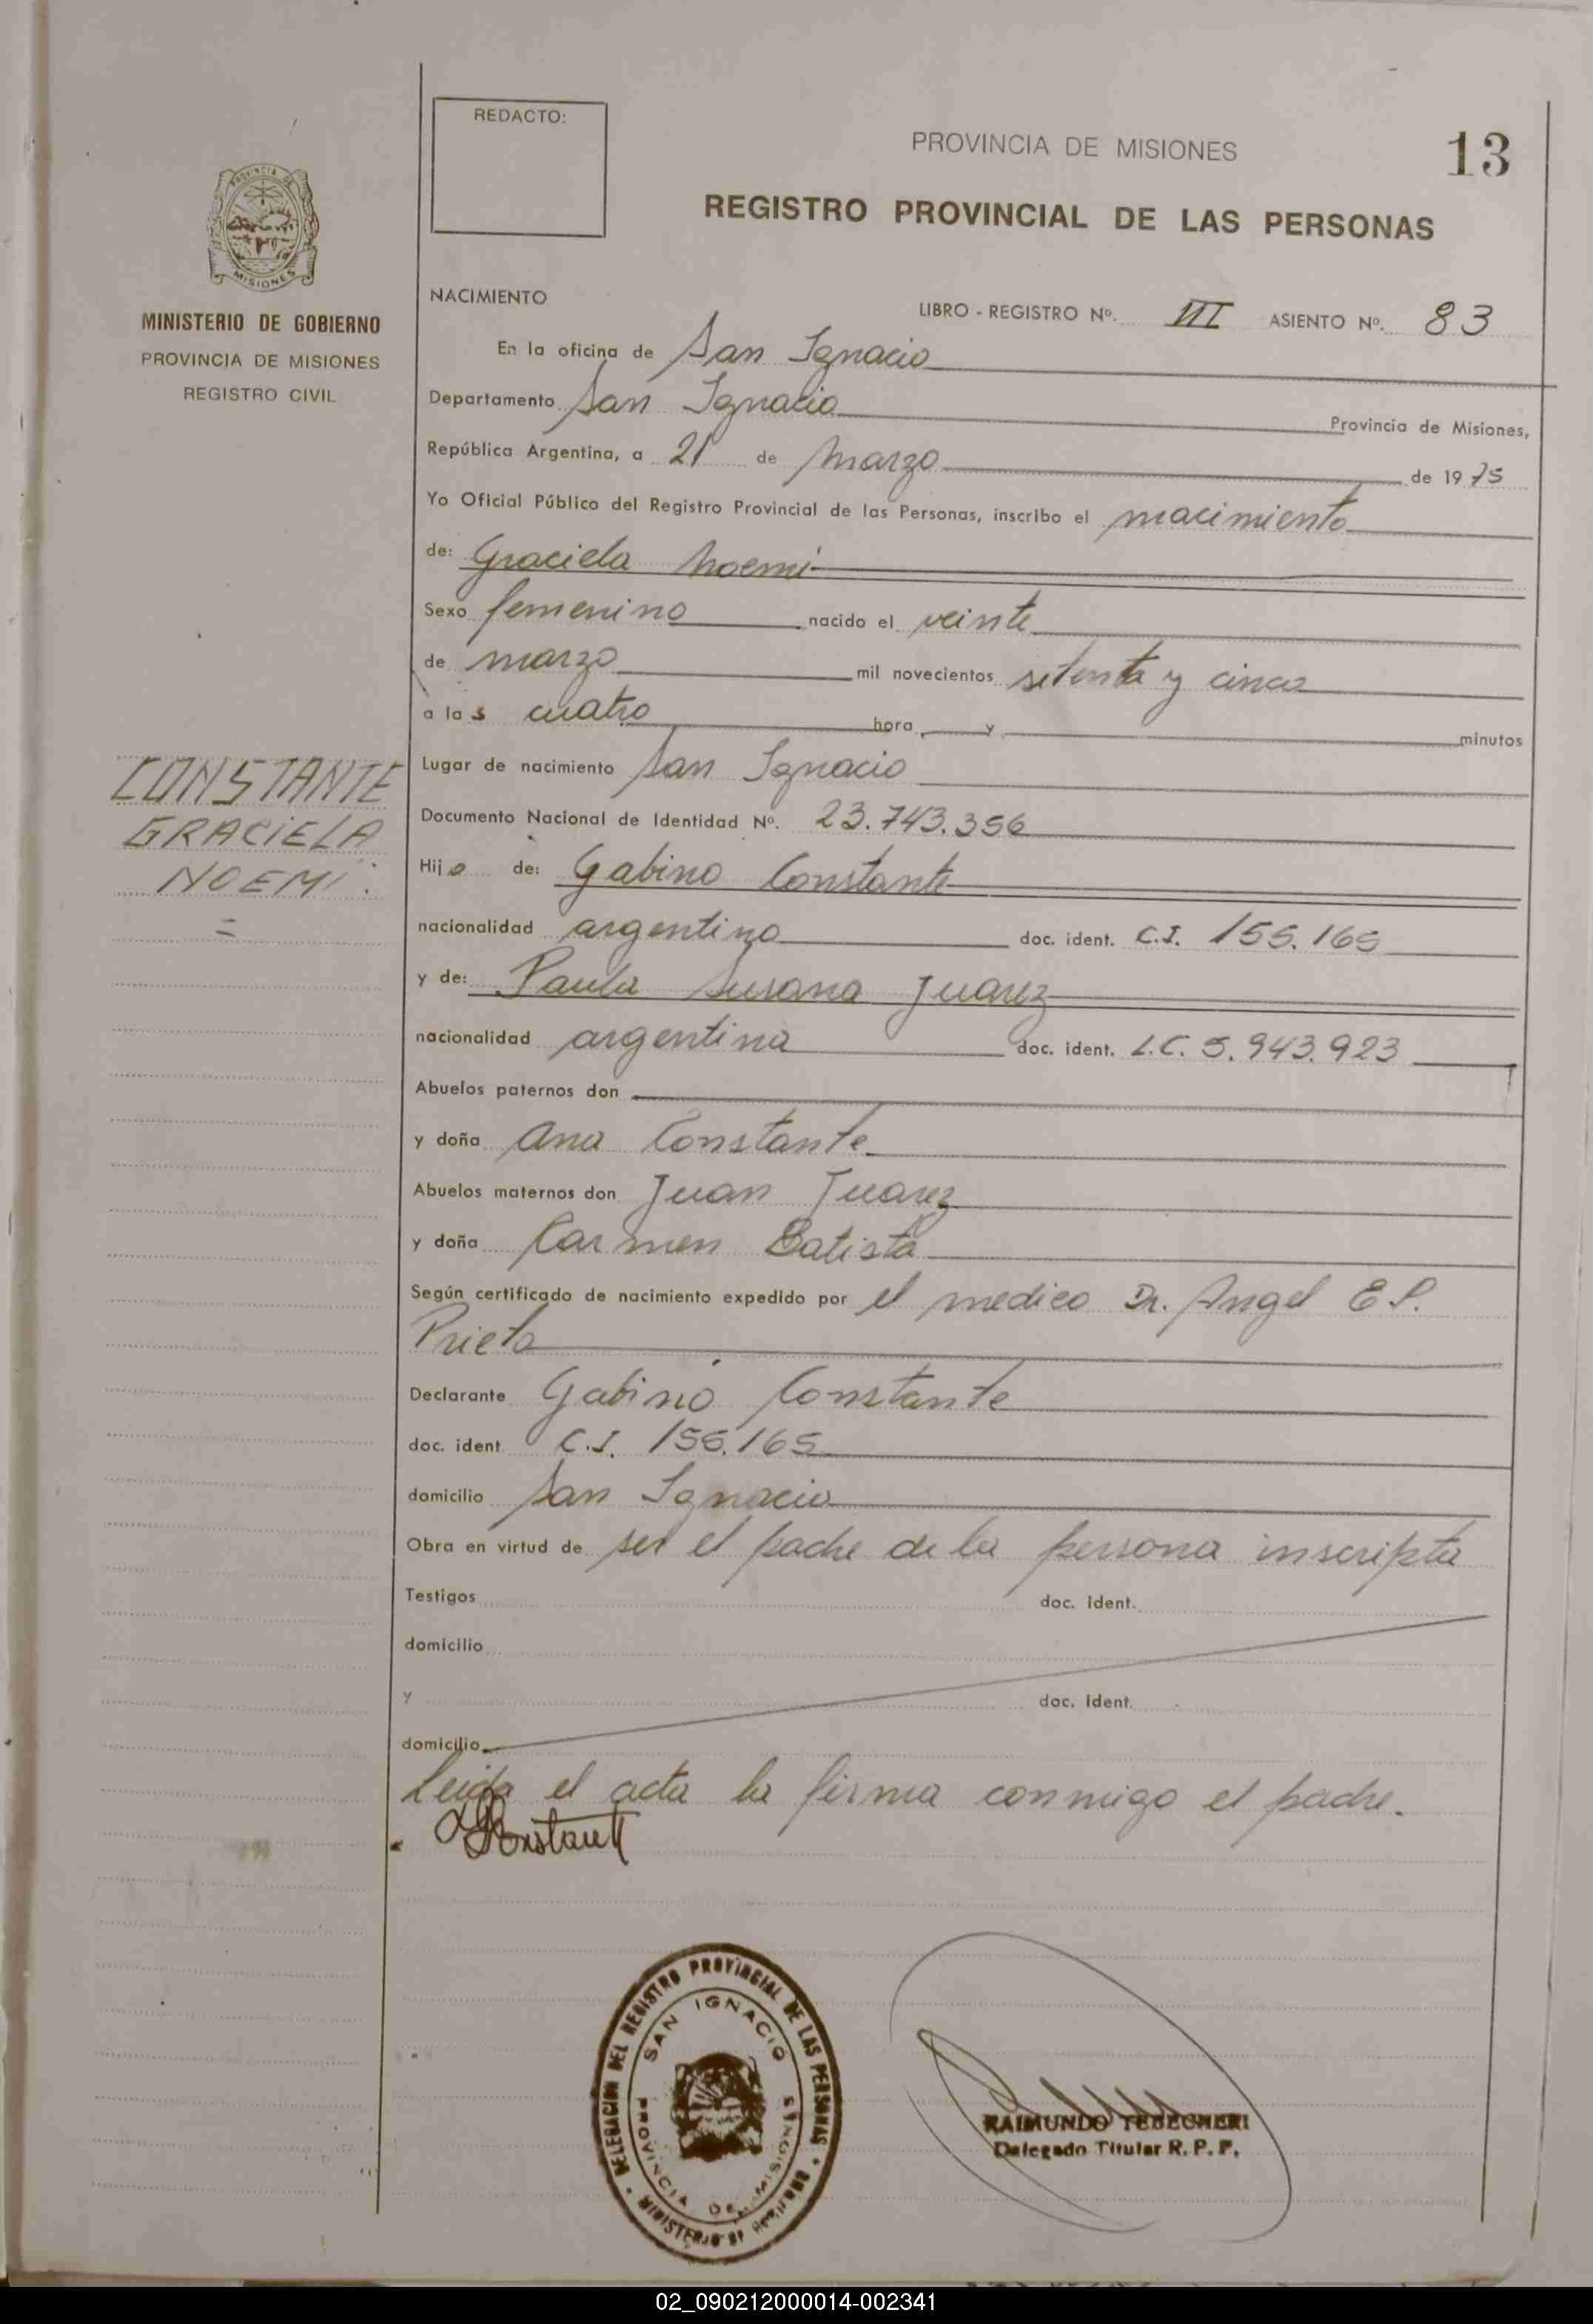 REDACTO:
PROVINCIA DE MISIONES
13
REGISTRO PROVINCIAL DE LAS PERSONAS
PROVINCIA DE
MISIONES
MINISTERIO DE GOBIERNO
PROVINCIA DE MISIONES
REGISTRO CIVIL
NACIMIENTO
LIBRO - REGISTRO Nº. III ASIENTO Nº. 83
En la oficina de San Ignacio
Departamento San Ignacio Provincia de Misiones,
República Argentina, a 21 de Marzo de 1975
Yo Oficial Público del Registro Provincial de las Personas, inscribo el nacimiento
de: Graciela Noemí
Sexo femenino nacido el veinte
de marzo mil novecientos setenta y cinco
a las cuatro hora y minutos
Lugar de nacimiento San Ignacio
CONSTANTE
GRACIELA
NOEMI.
=
Documento Nacional de Identidad Nº. 23.743.356
Hija de: Gabino Constante
nacionalidad argentino doc. ident. C.I. 155.165
y de: Paula Susana Juarez
nacionalidad argentina doc. ident. L.C. 5.943.923
Abuelos paternos don
y doña Ana Constante
Abuelos maternos don Juan Juarez
y doña Carmen Batista
Según certificado de nacimiento expedido por el medico Dr. Angel E.P.
Prieto
Declarante Gabino Constante
doc. ident C.I. 155.165
domicilio San Ignacio
Obra en virtud de ser el padre de la persona inscripta
Testigos doc. ident.
domicilio
y doc. ident.
domicilio
Leida el acta la firma conmigo el padre.
Constante
DELEGACION DEL REGISTRO PROVINCIAL DE LAS PERSONAS
SAN IGNACIO
PROVINCIA DE MISIONES
MINISTERIO DE GOBIERNO
RAIMUNDO TEBECHERI
Delegado Titular R. P. P.
02_090212000014-002341